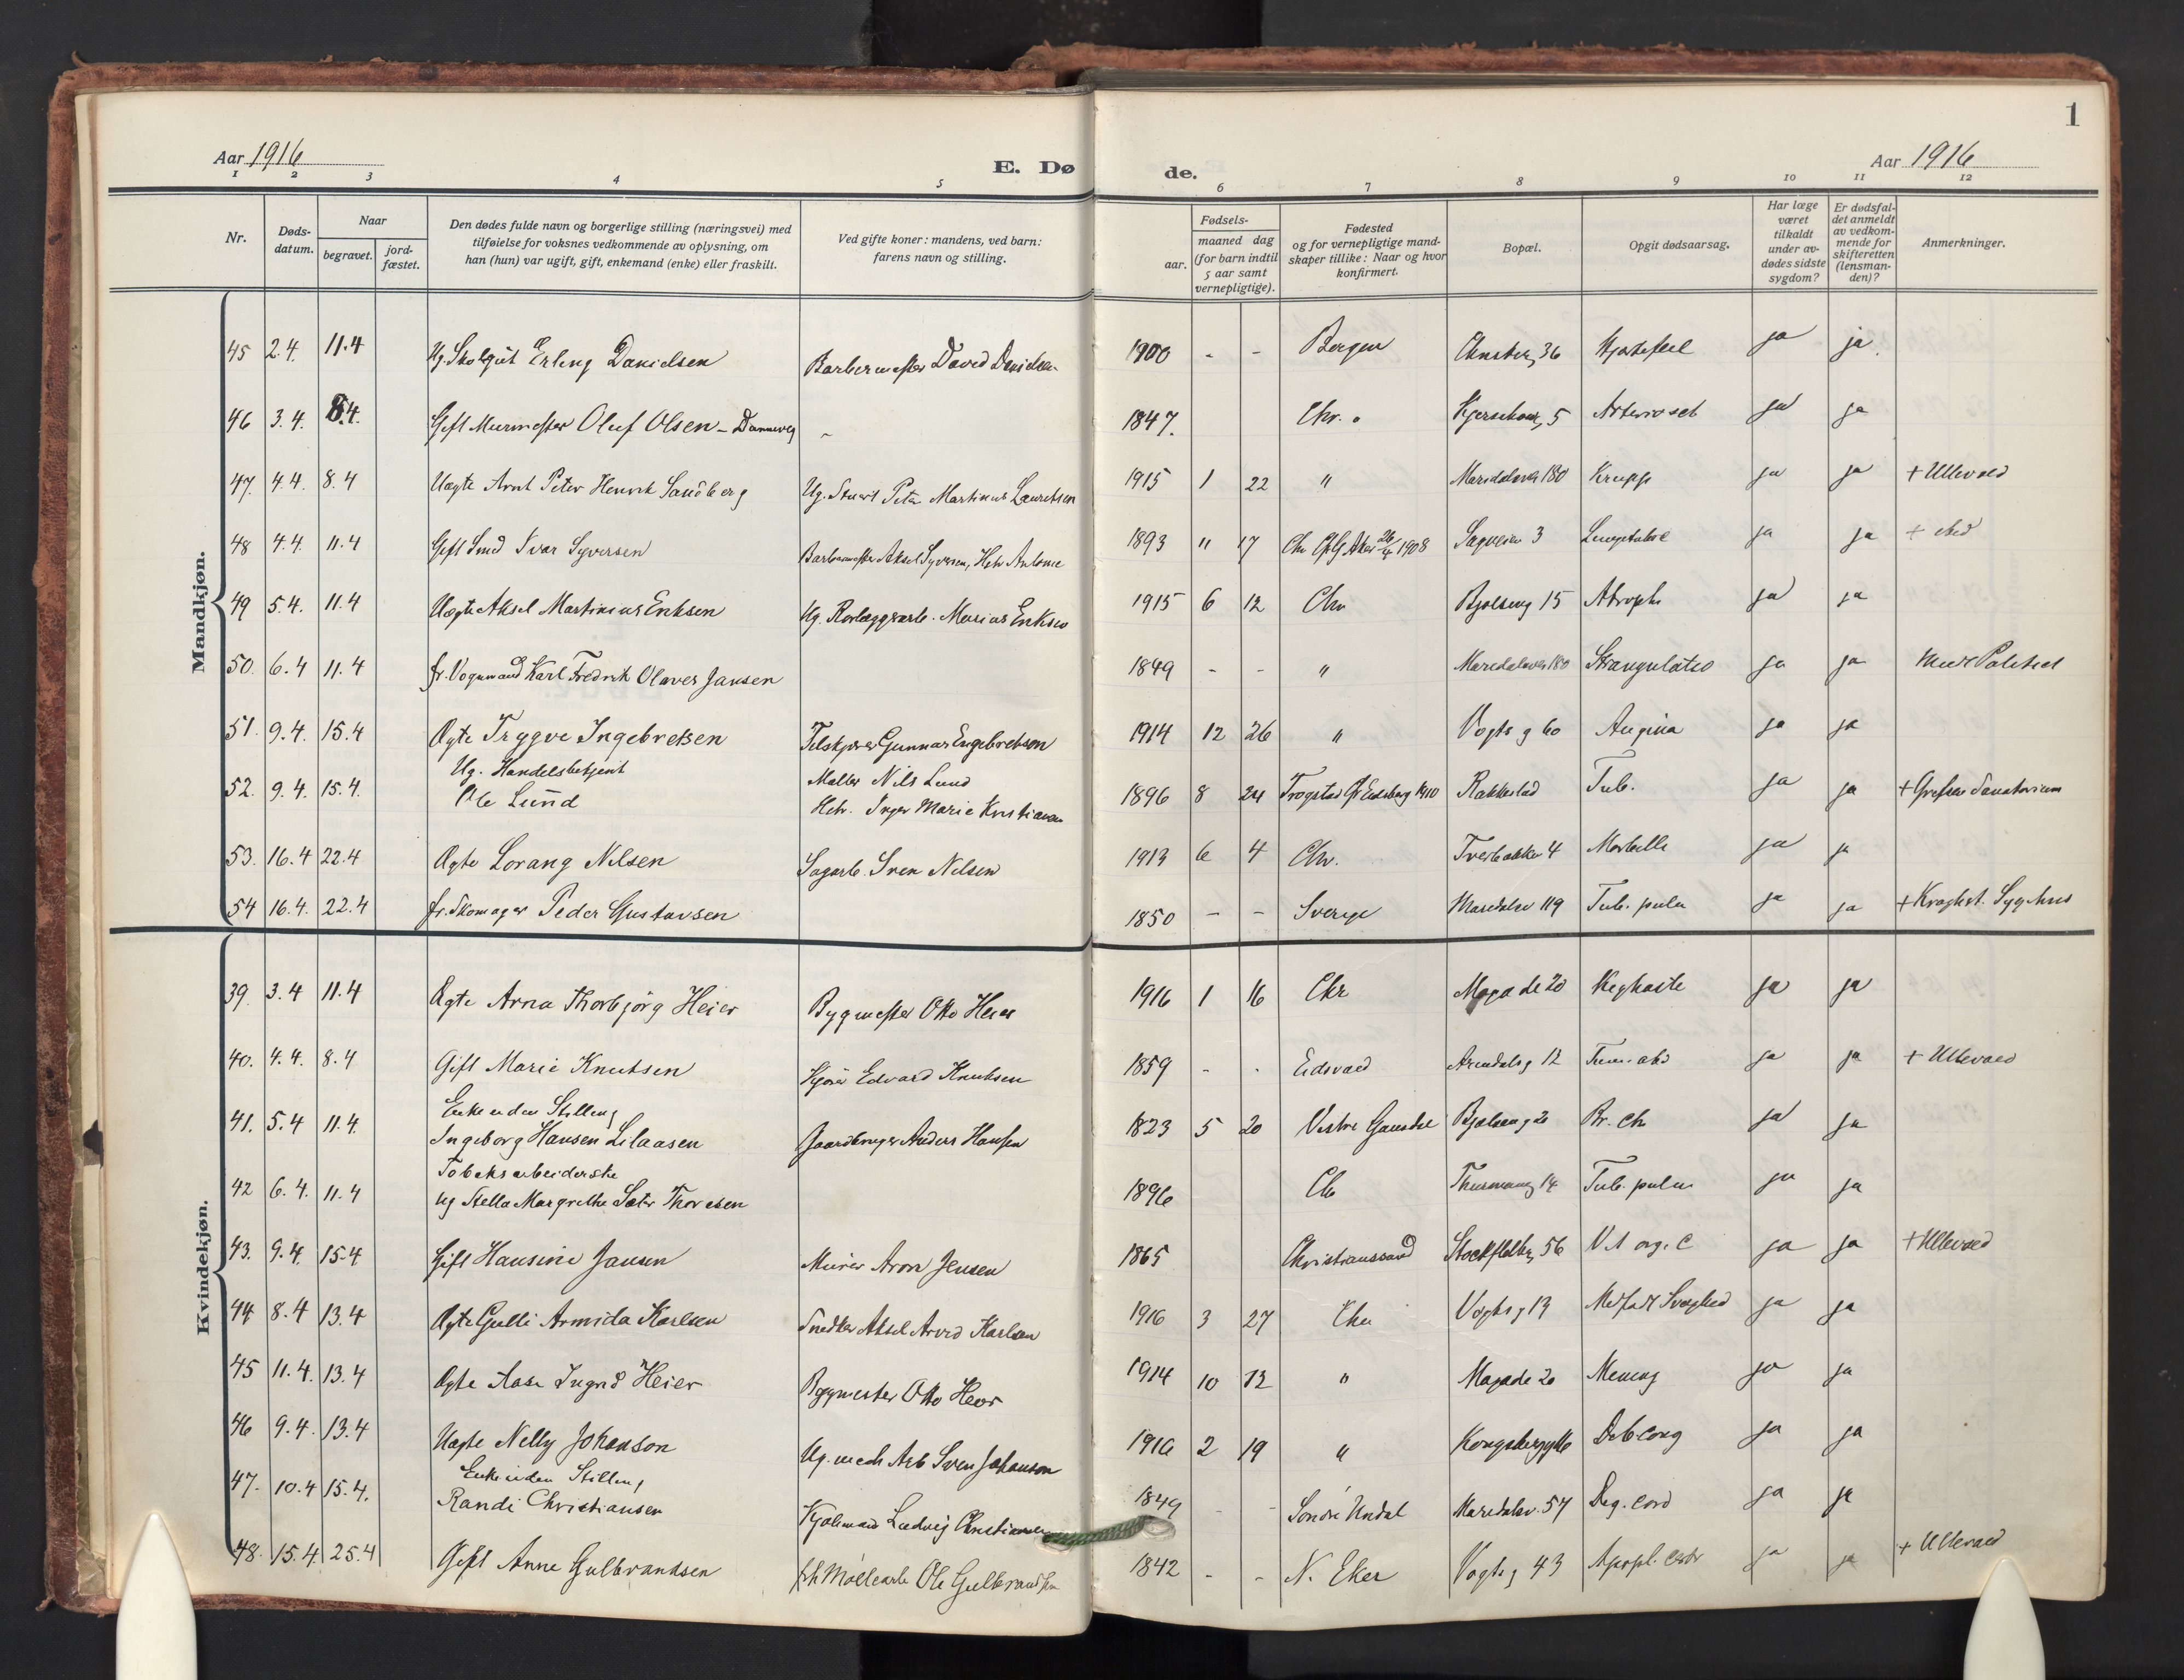 1
Aar 1916
E. Dø de.
Aar 1916
1 2 3 4 5 6 7 8 9 10 11 12
Nr.
Døds-
datum.
Naar
begravet.
jord-
fæstet.
Den dødes fulde navn og borgerlige stilling (næringsvei) med
tilføielse for voksnes vedkommende av oplysning, om
han (hun) var ugift, gift, enkemand (enke) eller fraskilt.
Ved gifte koner: mandens, ved barn:
farens navn og stilling.
Fødsels-
aar.
maaned dag
(for barn indtil
5 aar samt
vernepligtige).
Fødested
og for vernepligtige mand-
skaper tillike: Naar og hvor
konfirmert.
Bopæl.
Opgit dødsaarsag.
Har læge
været
tilkaldt
under av-
dødes sidste
sygdom?
Er dødsfal-
det anmeldt
av vedkom-
mende for
skifteretten
(lensman-
den)?
Anmerkninger.
Mandkjøn.
45 2.4. 11.4 Ug. Skolegut Erling Danielsen Barbermester David Danielsen 1900 - - Bergen 36 Hjertefeil ja ja
46 3.4. 8.4. Gift Murmester Oluf Olsen - Dannevig - 1847. Chr. 5 ja ja
47. 4.4. 8.4 Uægte Arnt Peter Henrik Sandberg Ug. Stuert Peter Martinus Lauritsen 1915 1 22 " Maridalsvei 180 Krupp ja ja + Ullevaal
48 4.4. 11.4 Gift Smed Ivar Syversen Barbermester Aksel Syversen, 1893 11 17 Chr Aker 26/4 1908 Sagveien 3 ja ja
49 5.4. 11.4 Uægte Aksel Martinius Eriksen Ug. Rørlæggerarb. Marius Eriksen 1915 6 12 Chr Bjølseng 15 Atrophi ja ja
50. 6.4 11.4 fr. Vognmand Karl Fredrik Olaves Jansen 1849 - - " Maridalsvei 180 Strangulatio ja ja
51. 9.4. 15.4 Ægte Trygve Ingebretsen Gunnar Engebretsen 1914 12 26 " Vogts g 60 Angina ja ja
52. 9.4. 15.4. Ug. Handelsbetjent
Ole Lund Møller Nils Lund
Hstr. Inger Marie Kristiansen 1896 8 24 Trøgstad Eidsberg 1910 Rakkestad Tub. ja ja + Grefsen Sanatorium
53. 16.4 22.4 Ægte Lorang Nilsen Sagarb. Sven Nilsen 1913 6 4 Chr. Tverbakken 4 Morbilli ja ja
54 16.4. 22.4 fr. Skomager Peder Gustavsen 1850 - - Sverge Maridalsv 119 Tub. pulm ja ja + Kroghst. Sygehus
Kvindekjøn.
39. 3.4 11.4 Ægte Arna Thorbjörg Heier Bygmester Otto Heier 1916 1 16 Chr Møgade 20 Kighoste ja ja
40. 4.4. 8.4 Gift Marie Knutsen Kjører Edvard Knutsen 1859 - - Eidsvold Arendalsg 12 ja ja + Ullevaal
41. 5.4 11.4. Enke uden Stilling
Ingeborg Hansen Lilaasen Gaardbruger Anders Hansen 1823 5 20 Vestre Gausdal Bjølseng 20 Br. ch ja ja
42 6.4. 11.4 Tobaksarbeiderske
ug Stella Margrethe Sæter Thoresen 1896 Ch Thurmanng 14 Tub. pulm ja ja
43. 9.4. 15.4 Gift Hansine Jansen Murer Aron Jensen 1865 Christianssand Stockflethg 56 V. org. C ja ja + Ullevaal
44 8.4 13.4 Ægte Gulli Armida Karlsen Snedker Aksel Arvid Karlsen 1916 3 27 Chr Vogts g 13 Medfødt Svaghed ja ja
45 11.4. 13.4 Ægte Aase Ingrid Heier Bygmester Otto Heier 1914 10 12 " Møgade 20 Mening ja ja
46 9.4. 13.4 Uægte Nelly Johanson Ug. mech Arb Sven Johanson 1916 2 19 " Deb. cong ja ja
47. 10.4 15.4. Enke uden Stilling
Randi Christiansen Ludvig Christiansen 1849 - - Söndre Undal Maridalsv. 57 Deg. cord ja ja
48. 15.4 25.4 Gift Anne Gulbrandsen Ole Gulbrandsen 1842 - - N. Eker Vogts g 43 Apopl. cerebr ja ja + Ullevaal